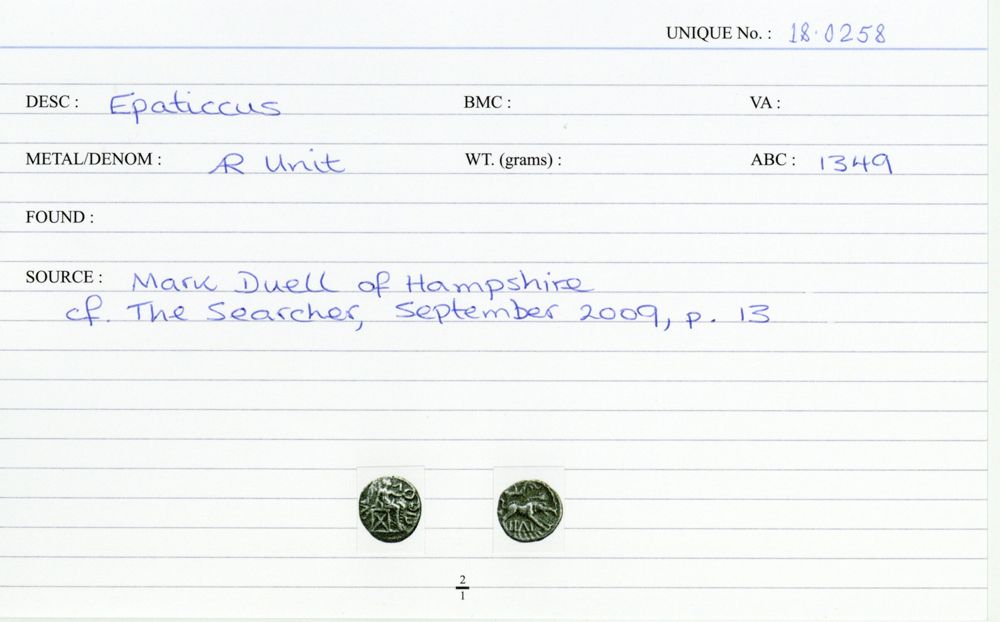 UNIQUE No. : 18.0258
DESC : Epaticcus BMC : VA :
METAL/DENOM : AR Unit WT. (grams) : ABC : 1349
FOUND :
SOURCE : Mark Duell of Hampshire
cf. The Searcher, September 2009, p. 13
2
1